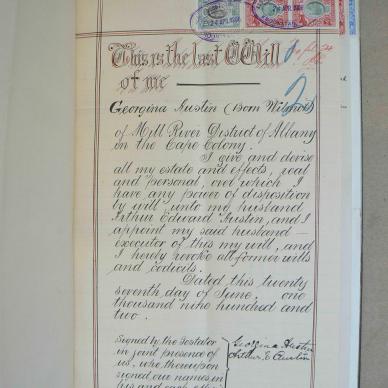 24 APL 1904
This is the last Will
of me
Georgina Austin (Born Wilmot)
of Mill River District of Albany
in the Cape Colony.
I give and devise
all my estate and effects, real
and personal, over which I
have any power of disposition
by will unto my husband
Arthur Edward Austin, and I
appoint my said husband
executor of this my will, and
I hereby revoke all former wills
and codicils.
Dated this twenty
seventh day of June, one
thousand nine hundred and
two.
Signed by the Testator
in joint presence of
us, who thereupon
signed our names in
his and each other's
Georgina Austin
Arthur E Austin